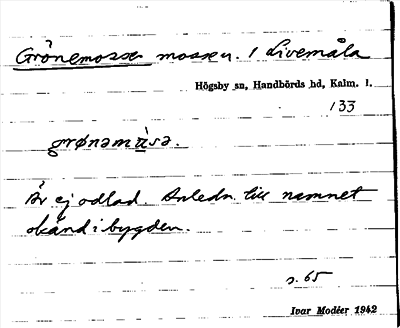 Grönemosse mosse u. / Livemåla
Högsby sn, Handbörds hd, Kalm. l.
133
grønəmùsə.
Är ej odlad. Anledn. till namnet
okänd i bygden.
s. 65
Ivar Modéer 1942